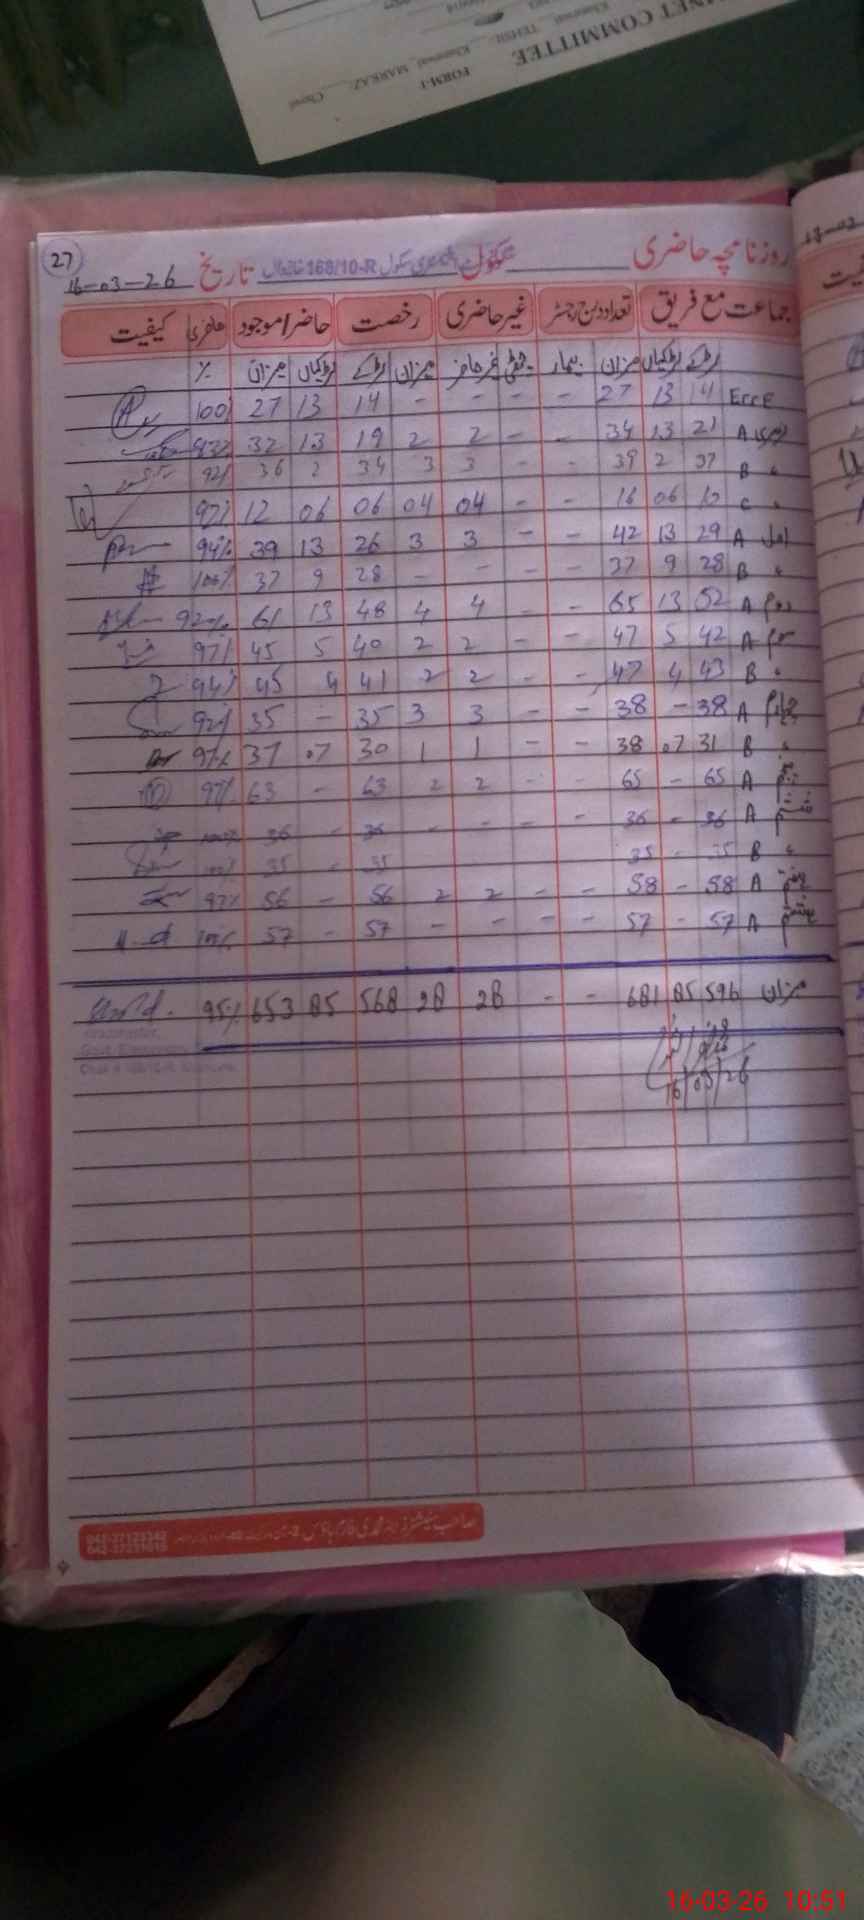 CABINET COMMITTEE
FORM-I
Khanewal MARKAZ: Khanewal TEHSIL
27
روزنامچہ حاضری سکول 168/10-R خانیوال تاریخ 16-03-26
جماعت مع فریق تعداد درج رجسٹر غیر حاضری رخصت حاضر/موجود حاضری کیفیت
لڑکے لڑکیاں میزان بیمار چھٹی غیر حاضر میزان لڑکے لڑکیاں میزان ٪
ECCE 14 13 27 - - - - 14 13 27 100%
نرسری A 21 13 34 - - 2 2 19 13 32
" B 37 2 39 - - 3 3 34 2 36 92%
" C 10 06 16 - - 04 04 06 06 12 97%
اول A 29 13 42 - - 3 3 26 13 39 94%
" B 28 9 37 - - - - 28 9 37 100%
دوم A 52 13 65 - - 4 4 48 13 61 92%
سوم A 42 5 47 - - 2 2 40 5 45 97%
" B 43 4 47 - - 2 2 41 4 45 94%
چہارم A 38 - 38 - - 3 3 35 - 35 92%
" B 31 07 38 - - 1 1 30 07 37 97%
پنجم A 65 - 65 - - 2 2 63 - 63 97%
ششم A 36 - 36 - - - - 36 - 36 100%
" B 35 - 35 35 - 35 100%
ہفتم A 58 - 58 - - 2 2 56 - 56 97%
ہشتم A 57 - 57 - - - - 57 - 57 100%
میزان 596 85 681 - - 28 28 568 85 653 95%
16/03/26
042-37123342
16-03-26 10:51